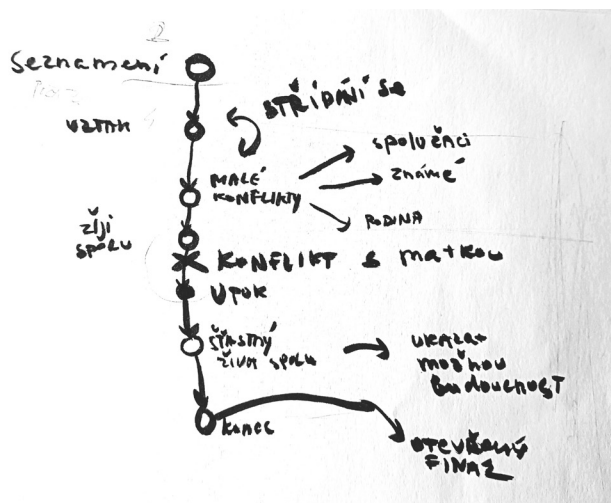 Seznamení
STŘÍDÁNÍ SE
VZTAH
MALÉ
KONFLIKTY
spolužáci
známé
RODINA
žijí
spolu
KONFLIKT s matkou
ÚTOK
šťastný
život spolu
ukázat
možnou
budoucnost
konec
otevřený
FINÁL